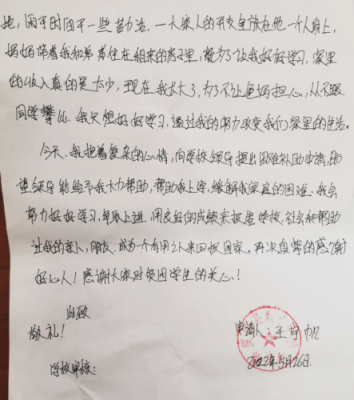 地,闲时间干一些苦力活。一大家人的开支全放在他一个人身上,
妈妈带着我和弟弟住在租来的房子里,都为了让我好好学习,家里
的收入真的是太少,现在我长大了,为了不让爸妈担心,从不跟
同学攀比,我只想好好学习,通过我的努力改变我们家里的生活。
今天,我抱着复杂的心情,向学校领导提出困难补助申请,希
望领导能给予我大力帮助,帮助我上进,缓解我家庭的困难。我会
努力好好学习,争取上进,用良好的成绩来报答学校、社会和帮助
过我的亲人,朋友。成为一个有用之人来回报国家,再次真挚的感谢
好心人!感谢大家对贫困学生的关心!
此致
敬礼!
申请人:王
2022年5月26日
学校审核: